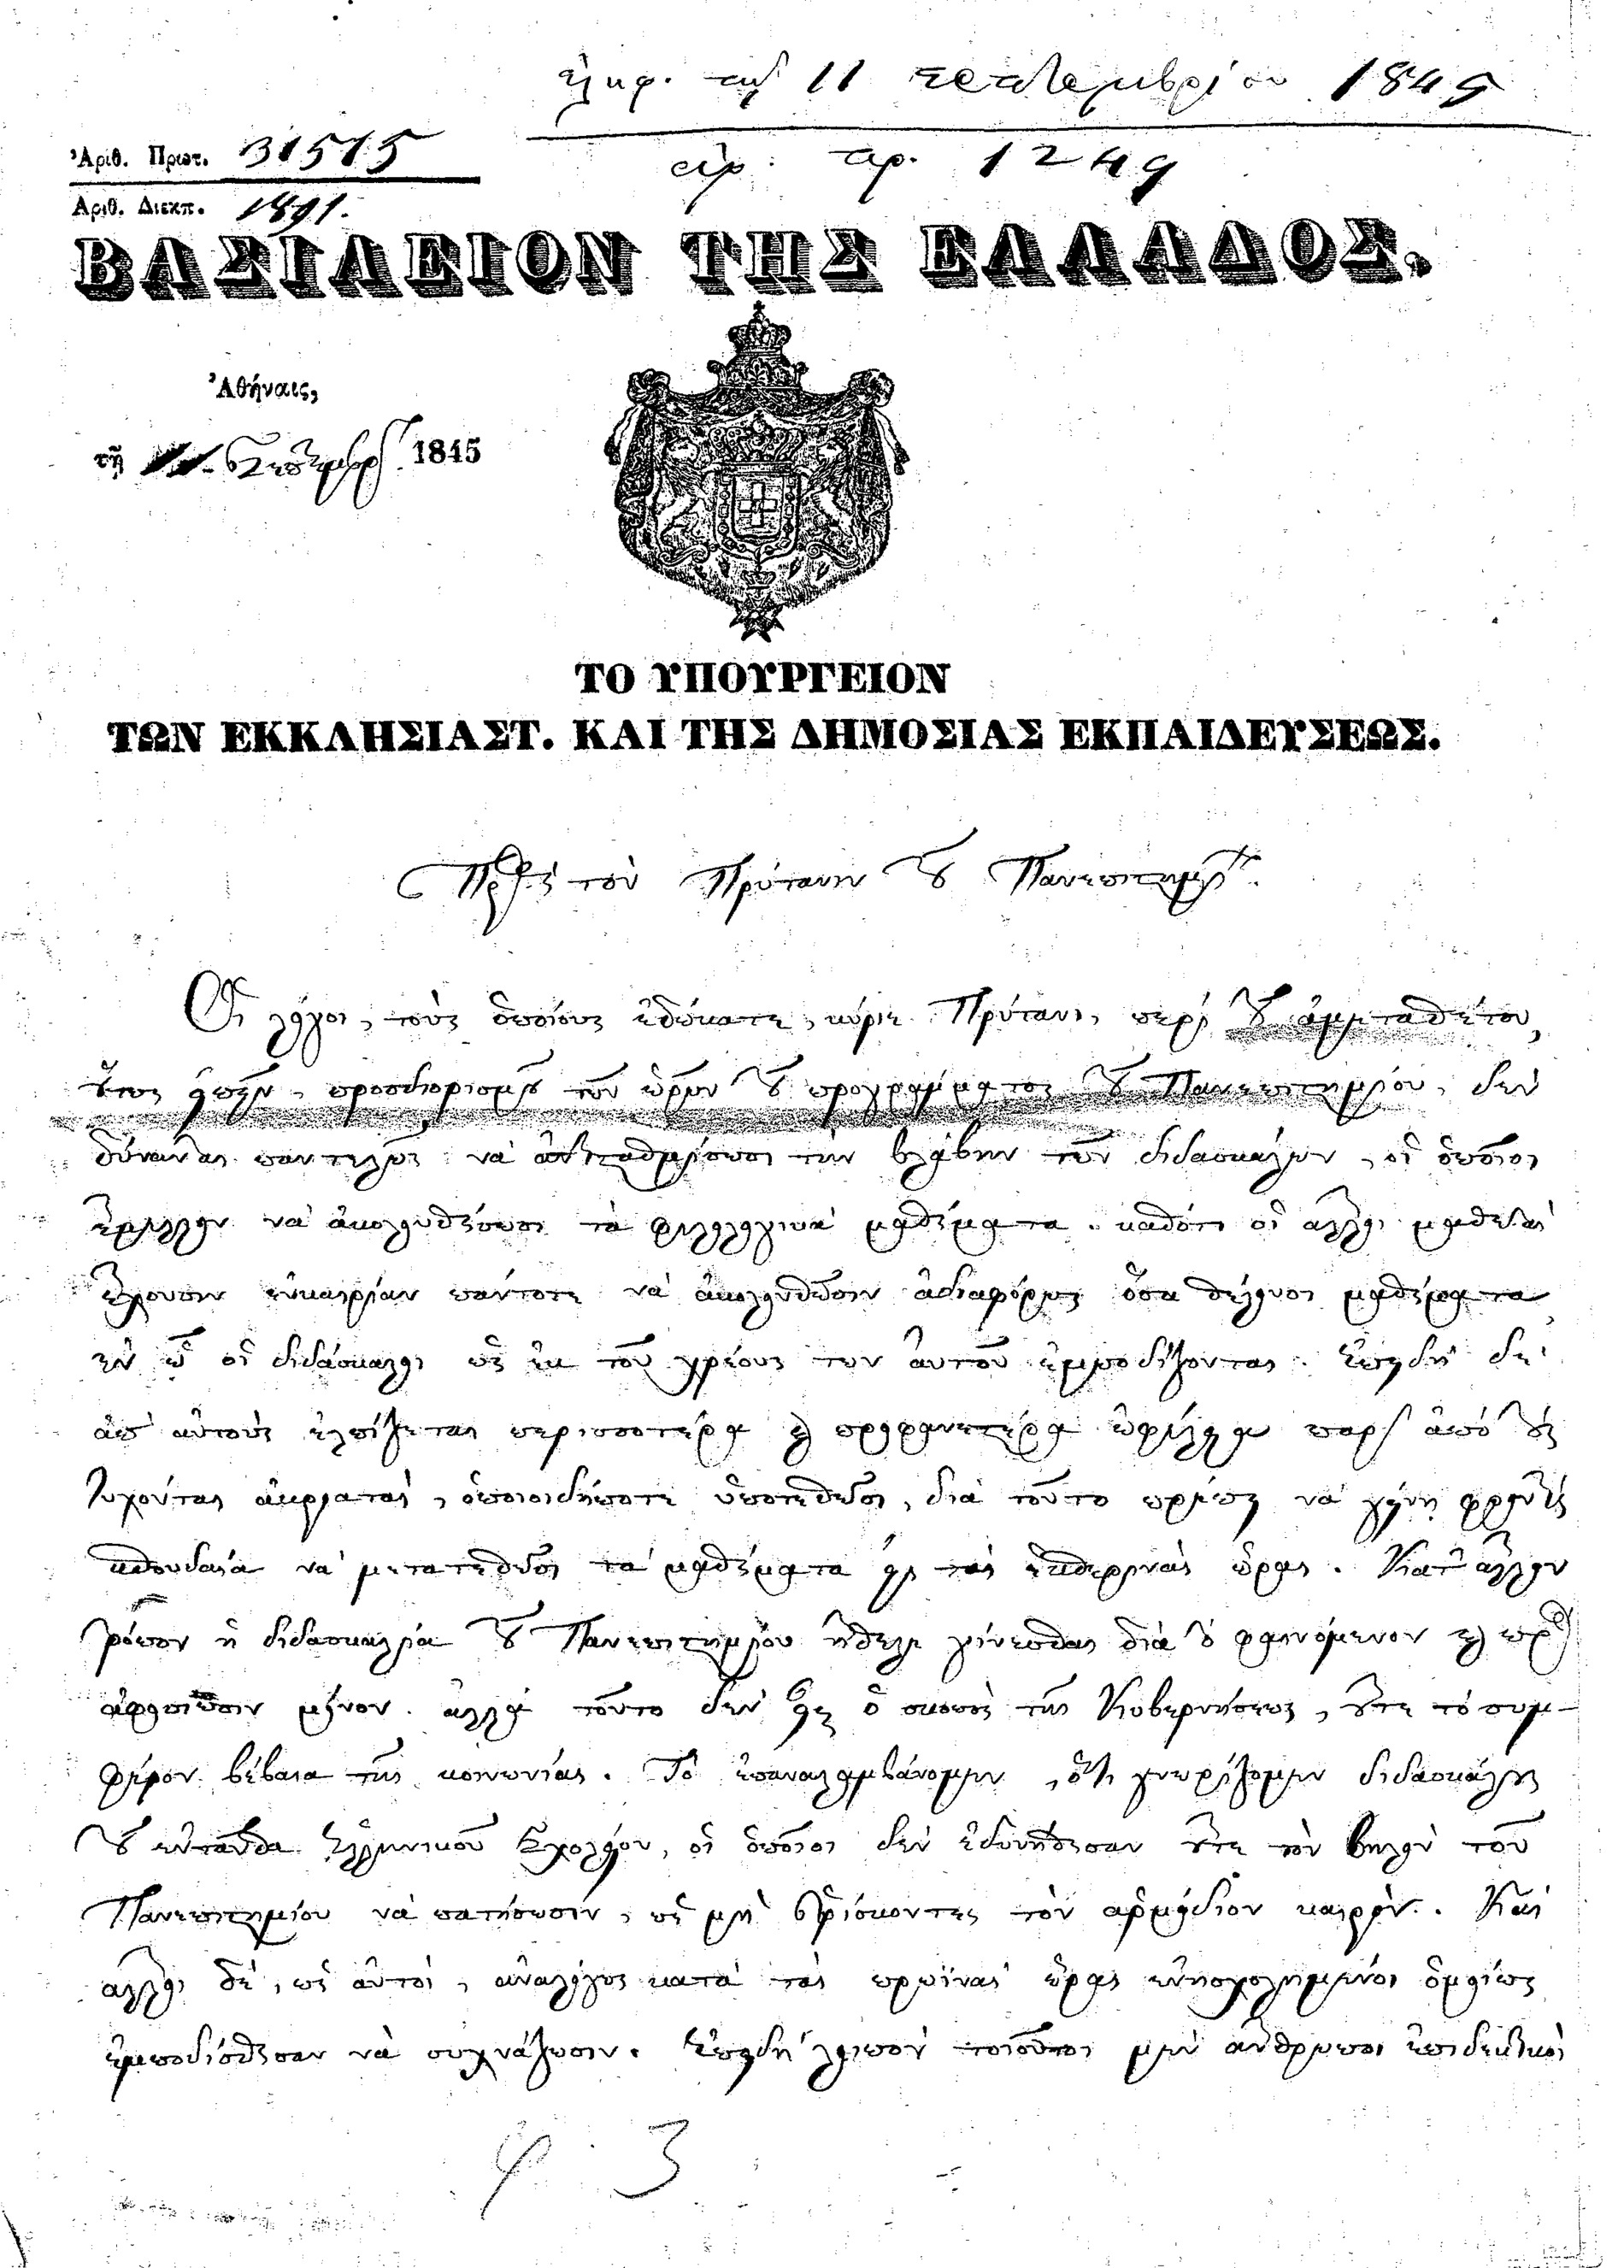 ἐλήφ. τῇ 11 σεπτεμβρίου 1845
ἀρ. πρ. 1249
Ἀριθ. Πρωτ. 31515
Ἀριθ. Διεκπ. 1891.
ΒΑΣΙΛΕΙΟΝ ΤΗΣ ΕΛΛΑΔΟΣ.
Ἀθήναις,
τῇ Σεπτεμβρ. 1845
ΤΟ ΥΠΟΥΡΓΕΙΟΝ
ΤΩΝ ΕΚΚΛΗΣΙΑΣΤ. ΚΑΙ ΤΗΣ ΔΗΜΟΣΙΑΣ ΕΚΠΑΙΔΕΥΣΕΩΣ.
Πρὸς τὸν Πρύτανιν τοῦ Πανεπιστημίου.
Οἱ λόγοι, τοὺς ὁποίους ἐδώκατε, κύριε Πρύτανι, περὶ τοῦ ἀμεταθέτου,
οὕτως εἰπεῖν, προσδιορισμοῦ τῶν ὡρῶν τοῦ προγράμματος τοῦ Πανεπιστημίου, δὲν
δύνανται παντελῶς νὰ ἀντισταθμίσωσι τὴν βλάβην τῶν διδασκάλων, οἱ ὁποῖοι
ἔμελλον νὰ ἀκολουθήσωσι τὰ φιλολογικὰ μαθήματα. καθότι οἱ ἄλλοι μαθηταὶ
ἔχουσιν εὐκαιρίαν πάντοτε νὰ ἀκολουθῶσιν ἀδιαφόρως ὅσα θέλουσι μαθήματα,
ἐν ᾧ οἱ διδάσκαλοι ὡς ἐκ τοῦ χρέους των αὐτοῦ ἐμποδίζονται. Ἐπειδὴ δὲ
ἀπ' αὐτοὺς ἐλπίζεται περισσοτέρα καὶ προφανεστέρα ὠφέλεια παρὰ ἀπὸ τοὺς
τυχόντας ἀκροατὰς, ὁποιοιδήποτε ὑποτεθῶσι, διὰ τοῦτο πρέπει νὰ γείνῃ φροντὶς
σπουδαία νὰ μετατεθῶσι τὰ μαθήματα εἰς τὰς ἑσπερινὰς ὥρας. Κατ' ἄλλον
τρόπον ἡ διδασκαλία τοῦ Πανεπιστημίου ἤθελε γίνεσθαι διὰ τὸ φαινόμενον καὶ πρὸς
ἀφοσίωσιν μόνον. ἀλλὰ τοῦτο δὲν εἶναι ὁ σκοπὸς τῆς Κυβερνήσεως, οὔτε τὸ συμ-
φέρον βέβαια τῆς κοινωνίας. Τὸ ἐπαναλαμβάνομεν, ὅτι γνωρίζομεν διδασκάλους
τοῦ ἐνταῦθα Ἑλληνικοῦ Σχολείου, οἱ ὁποῖοι δὲν ἐδυνήθησαν οὔτε τὸν βηλὸν τοῦ
Πανεπιστημίου νὰ πατήσωσιν, ὡς μὴ εὑρίσκοντες τὸν ἁρμόδιον καιρόν. Καὶ
ἄλλοι δὲ, ὡς αὐτοὶ, ἀναλόγως κατὰ τὰς πρωϊνὰς ὥρας ἐνησχολημένοι ὁμοίως
ἐμποδίσθησαν νὰ συχνάζωσιν. Ἐπειδὴ λοιπὸν τοιοῦτοι μὲν ἄνθρωποι ἐπιδεκτικοὶ
φ 3